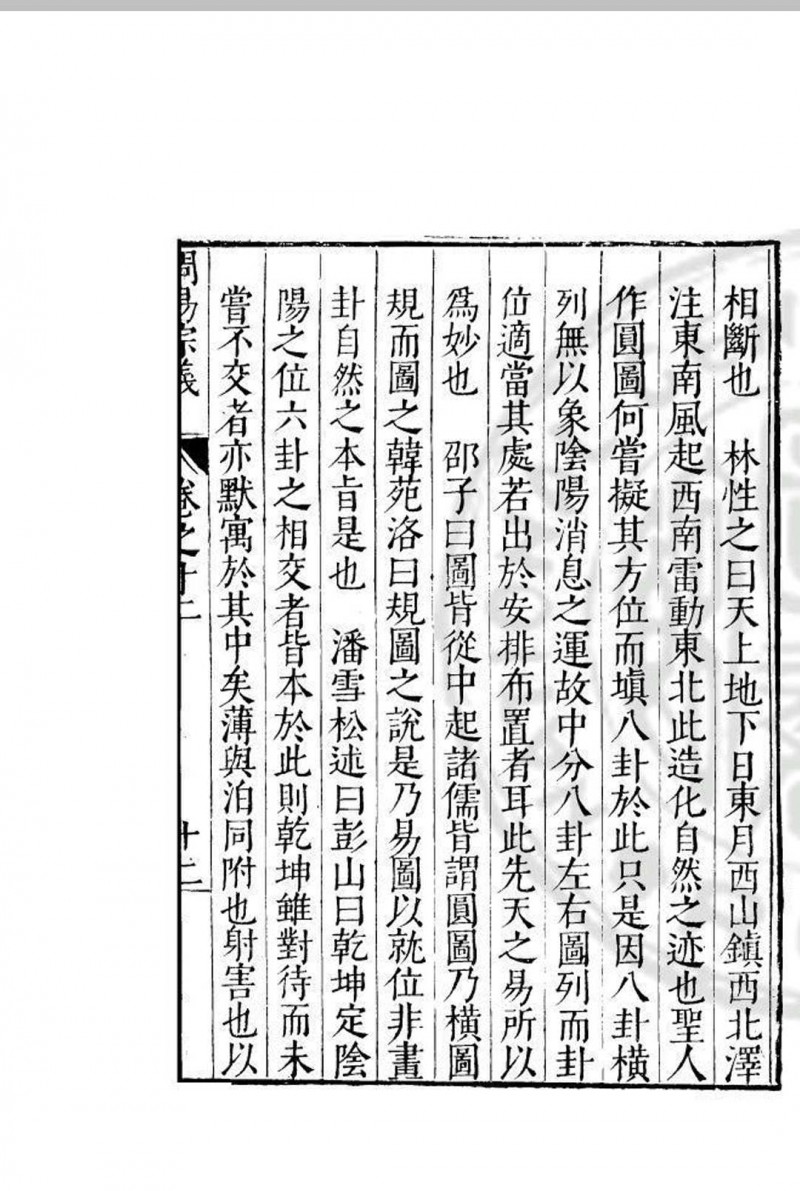 相斷也　林性之曰天上地下日東月西山鎮西北澤
注東南風起西南雷動東北此造化自然之迹也聖人
作圓圖何嘗擬其方位而塡八卦於此只是因八卦橫
列無以象陰陽消息之運故中分八卦左右圖列而卦
位適當其處若出於安排布置者耳此先天之易所以
爲妙也　邵子曰圖皆從中起諸儒皆謂圓圖乃橫圖
規而圖之韓苑洛曰規圖之說是乃易圖以就位非畫
卦自然之本旨是也　潘雪松述曰彭山曰乾坤定陰
陽之位六卦之相交者皆本於此則乾坤雖對待而未
嘗不交者亦默寓於其中矣薄與泊同附也射害也以
周易宗義　卷之十二　十二